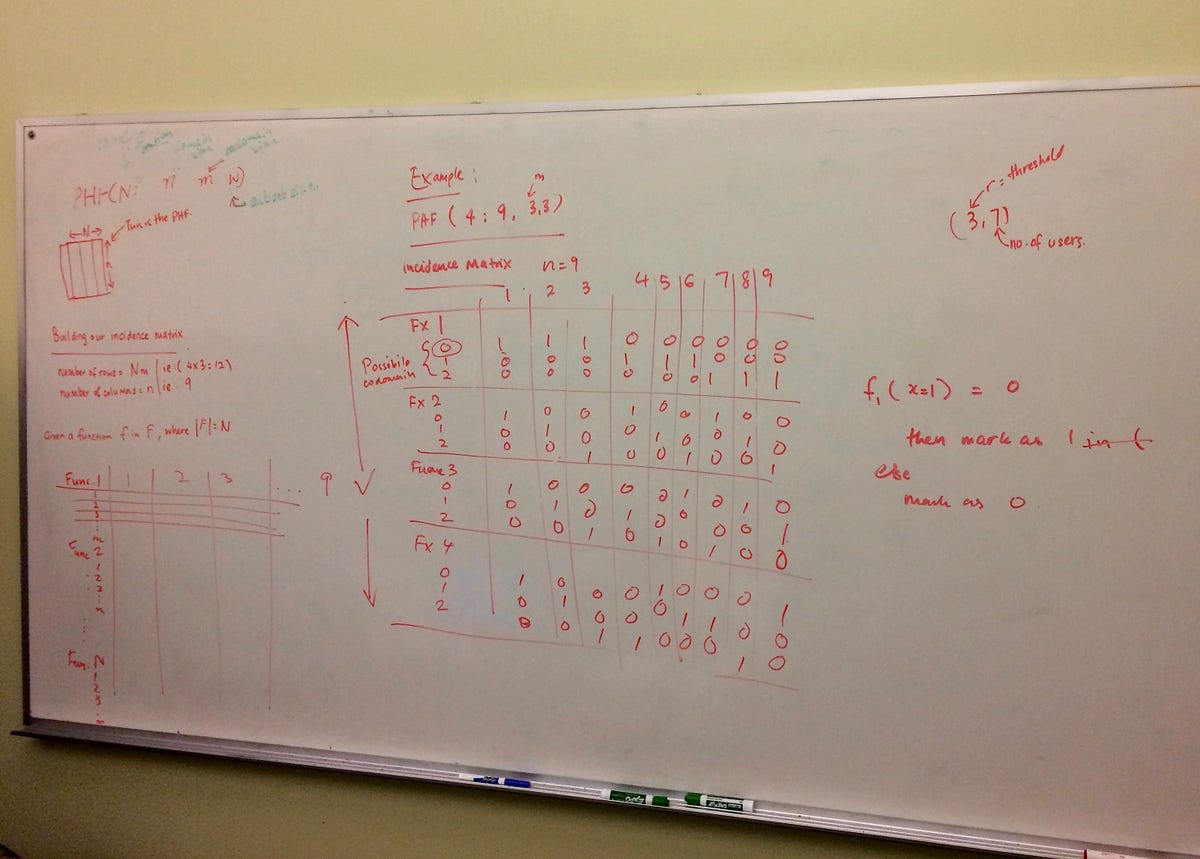 PHF(N: n m W)
domain size
codomain size
subset size
← N →
n
This is the PHF.
Building our incidence matrix
number of rows = Nm | ie (4x3=12)
number of columns = n | ie 9
Given a function f in F, where |F| = N
Func. 1 1 2 3 ... 9
1
2
3
:
m
Func 2
1
2
3
:
m
Func. N
1
2
3
:
m
Example:
m
PAF ( 4 : 9, 3,3 )
incidence Matrix n=9
1 2 3 4 5 6 7 8 9
Fx 1
Possible codomain
0 1 1 1 0 0 0 0 0 0
1 0 0 0 1 1 1 0 0 0
2 0 0 0 0 0 0 1 1 1
Fx 2
0 1 0 0 1 0 0 1 0 0
1 0 1 0 0 1 0 0 1 0
2 0 0 1 0 0 1 0 0 1
0 1 0 0 0 0 1 0 1 0
1 0 1 0 1 0 0 0 0 1
2 0 0 1 0 1 0 1 0 0
Fx 4
0 1 0 0 0 1 0 0 0 1
1 0 1 0 0 0 1 1 0 0
2 0 0 1 1 0 0 0 1 0
r = threshold
(3, 7)
no. of users.
f₁ ( x=1 ) = 0
then mark as 1 in f
else
mark as 0